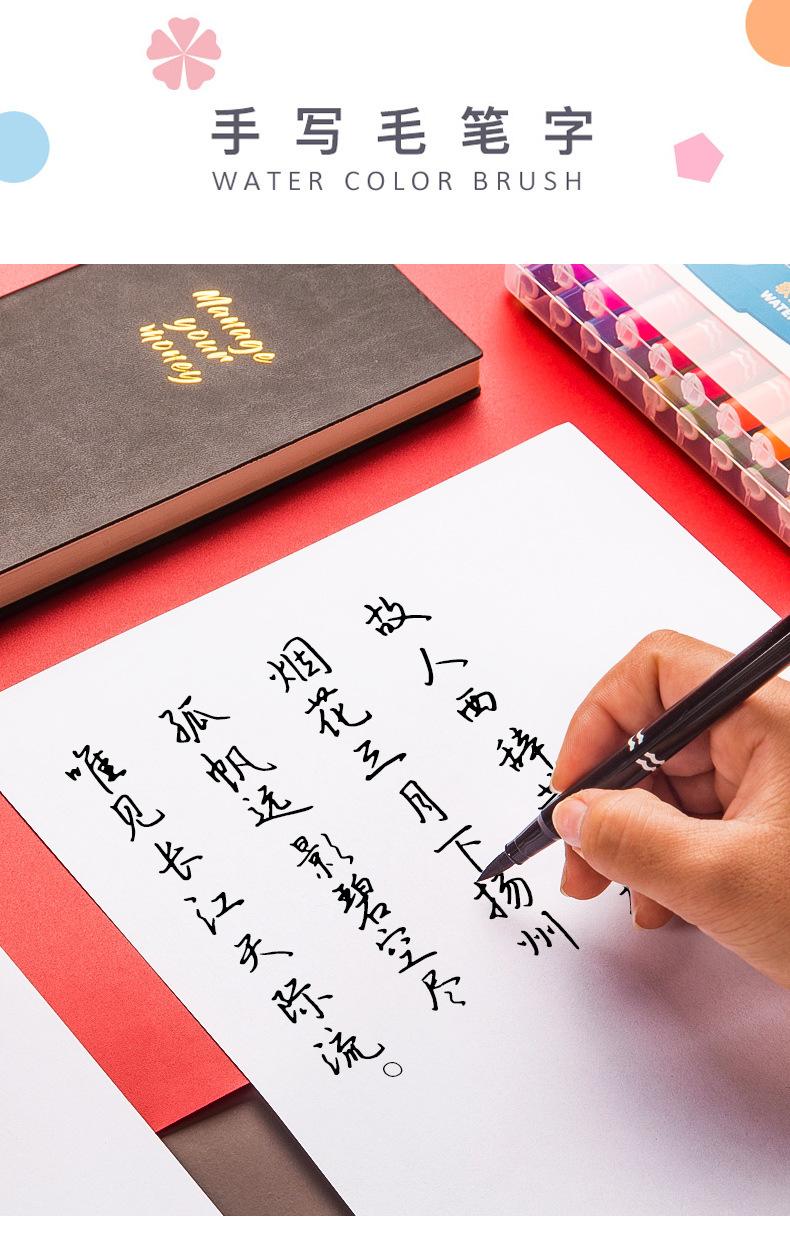 手写毛笔字
WATER COLOR BRUSH
Manage
your
money
WATER
故人西辞
烟花三月下扬州
孤帆远影碧空尽
唯见长江天际流。